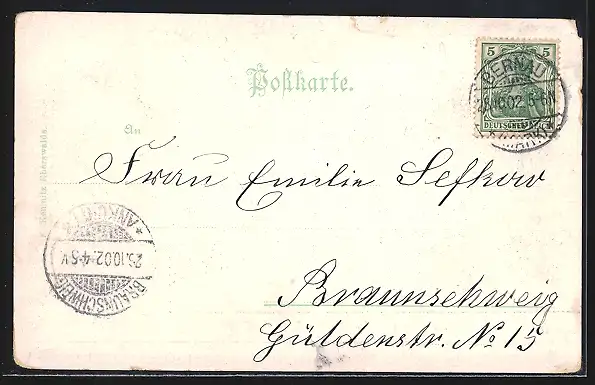 Postkarte.
5 5
BERNAU
.10.02. 5-6N
(MARK)
DEUTSCHES REICH
An
Frau Emilie Sefkow
ANKUNFT
25.10.02.4-5.N
BRAUNSCHWEIG
Braunschweig
Güldenstr. No 15